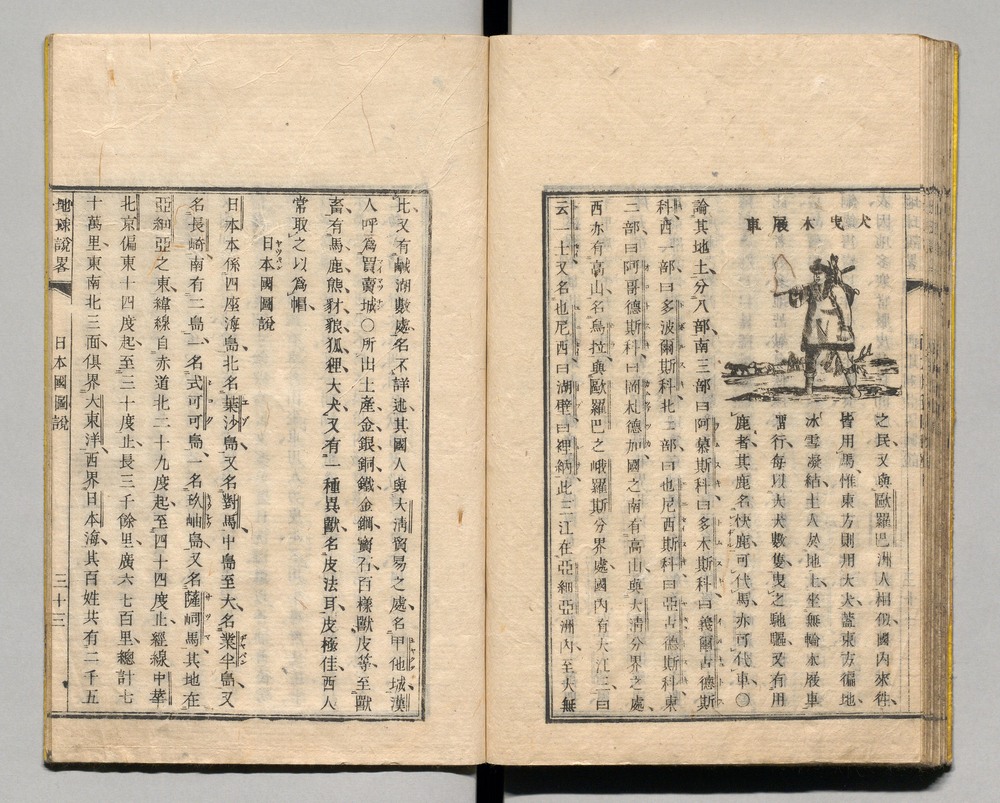 犬曳木屐車
之民又與歐羅巴洲人相似國內來往
皆用馬惟東方則用大犬蓋東方徧地
冰雪凝結土人於地上坐無輪木屐車
而行每以大犬數隻曳之馳驅又有用
鹿者其鹿名快鹿可代馬亦可代車〇
論其地土分八部南三部曰阿慕斯科曰多木斯科曰義爾古德斯
科西一部曰多波爾斯科北二部曰也尼西斯科曰亞古德斯科東
二部曰阿哥德斯科曰岡札德加國之南有高山與大淸分界之處
西亦有高山名烏拉與歐羅巴之峨羅斯分界處國內有大江三曰
云一土又名也尼西曰湖壁曰裡納此三江在亞細亞洲內至大無
比又有鹹湖數處名不詳述其國人與大淸貿易之處名甲他城漢
人呼爲買賣城〇所出土產金銀銅鐵金鋼寶石百樣獸皮等至獸
畜有馬鹿熊豺狼狐狸大犬又有一種異獸名皮法耳皮極佳西人
常取之以爲帽
日本國圖說
日本本係四座海島北名葉沙島又名對馬中島至大名業半島又
名長崎南有二島一名式可可島一名玖岫島又名薩峒馬其地在
亞細亞之東緯線自赤道北二十九度起至四十四度止經線中華
北京偏東十四度起至三十度止長三千餘里廣六七百里總計七
十萬里東南北三面俱界大東洋西界日本海其百姓共有二千五
地球說畧
日本國圖說
三十三